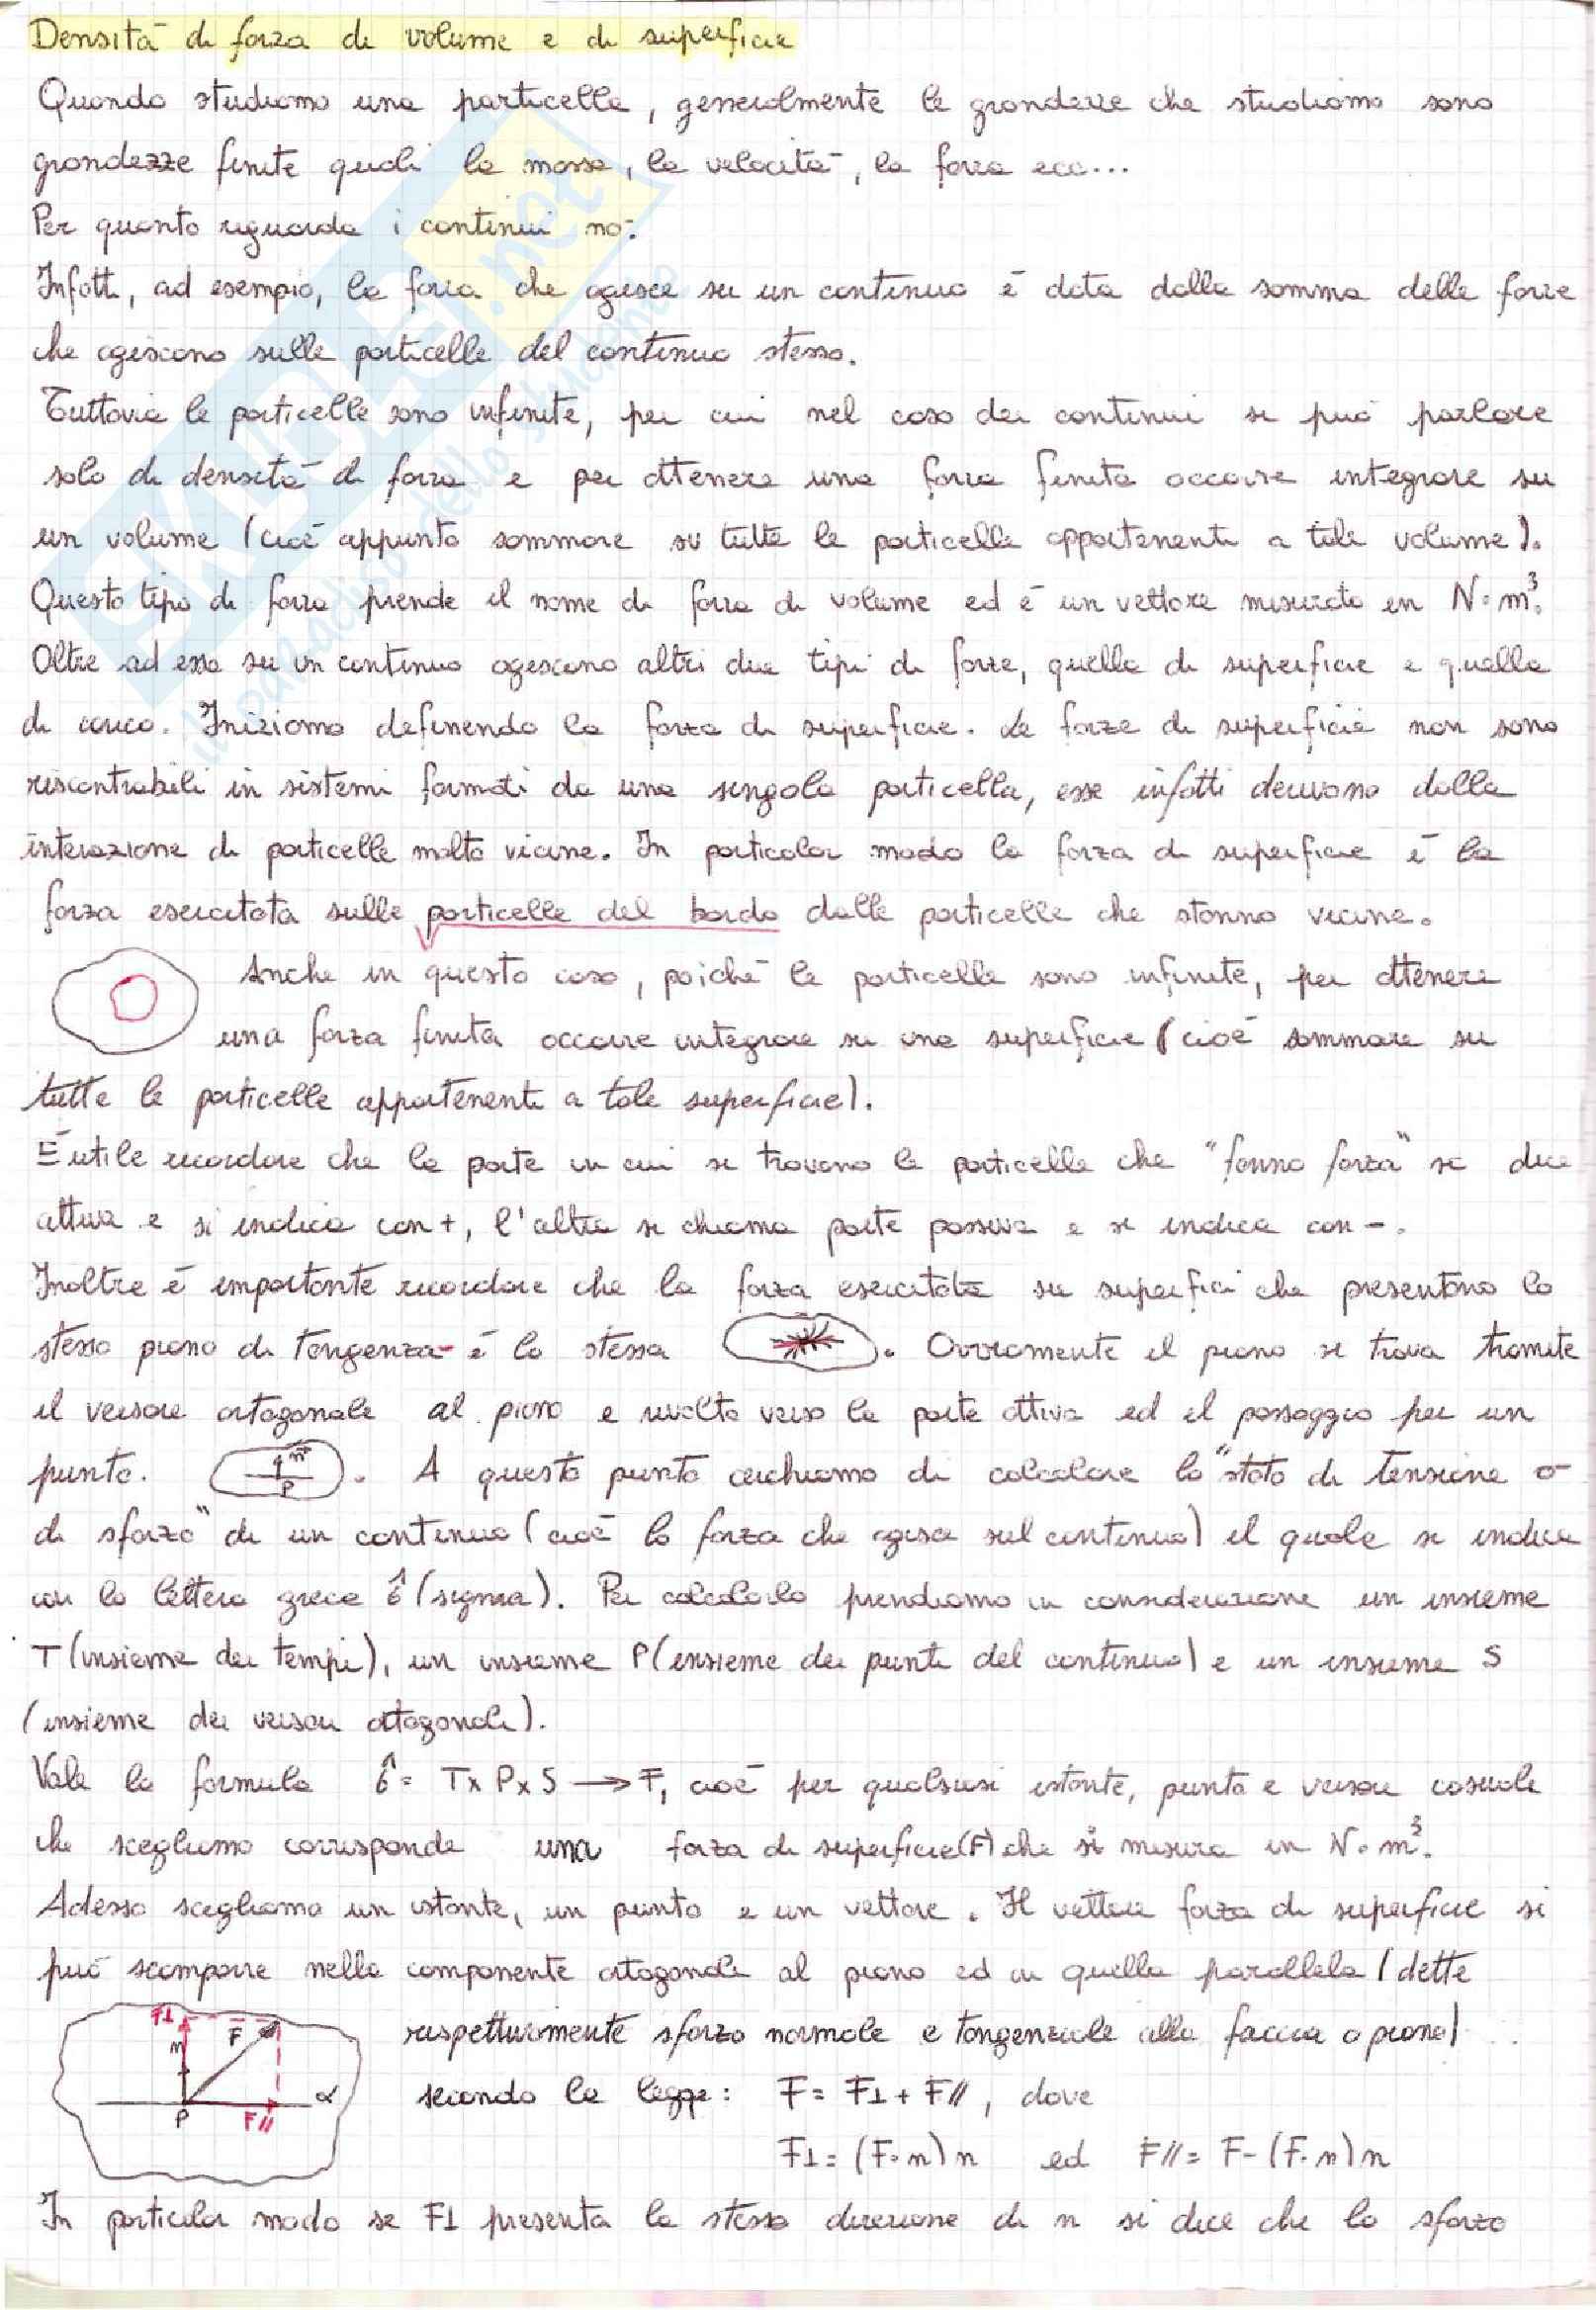 Densità di forza di volume e di superficie
Quando studiamo una particella, generalmente le grandezze che studiamo sono
grandezze finite quali la massa, la velocità, la forza ecc...
Per quanto riguarda i continui no:
Infatti, ad esempio, la forza che agisce su un continuo è data dalla somma delle forze
che agiscono sulle particelle del continuo stesso.
Tuttavia le particelle sono infinite, per cui nel caso dei continui si può parlare
solo di densità di forza e per ottenere una forza finita occorre integrare su
un volume (cioè appunto sommare su tutte le particelle appartenenti a tale volume).
Questo tipo di forza prende il nome di forza di volume ed è un vettore misurato in N·m³.
Oltre ad essa su un continuo agiscono altri due tipi di forze, quella di superficie e quella
di carico. Iniziamo definendo la forza di superficie. Le forze di superficie non sono
riscontrabili in sistemi formati da una singola particella, esse infatti derivano dalla
interazione di particelle molto vicine. In particolar modo la forza di superficie è la
forza esercitata sulle particelle del bordo dalle particelle che stanno vicine.
Anche in questo caso, poiché le particelle sono infinite, per ottenere
una forza finita occorre integrare su una superficie (cioè sommare su
tutte le particelle appartenenti a tale superficie).
È utile ricordare che la parte in cui si trovano le particelle che "fanno forza" si dice
attiva e si indica con +, l'altra si chiama parte passiva e si indica con -.
Inoltre è importante ricordare che la forza esercitata su superfici che presentano lo
stesso piano di tangenza è la stessa . Ovviamente il piano si trova tramite
il versore ortogonale al piano e rivolto verso la parte attiva ed il passaggio per un
punto. n P . A questo punto cerchiamo di calcolare lo "stato di tensione o
di sforzo" di un continuo (cioè la forza che agisce sul continuo) il quale si indica
con la lettera greca σ̂ (sigma). Per calcolarlo prendiamo in considerazione un insieme
T (insieme dei tempi), un insieme P (insieme dei punti del continuo) e un insieme S
(insieme dei versori ortogonali).
Vale la formula σ̂ = T x P x S → F, cioè per qualsiasi istante, punto e versore casuale
che scegliamo corrisponde una forza di superficie (F) che si misura in N·m³.
Adesso scegliamo un istante, un punto e un vettore. Il vettore forza di superficie si
può scomporre nella componente ortogonale al piano ed in quella parallela (dette
F⊥ F n α P F//
rispettivamente sforzo normale e tangenziale alla faccia o piano)
secondo la legge: F = F⊥ + F//, dove
F⊥ = (F·n)n ed F// = F-(F·n)n
In particolar modo se F⊥ presenta la stessa direzione di n si dice che lo sforzo
SKUOLA.net
il paradiso dello studente